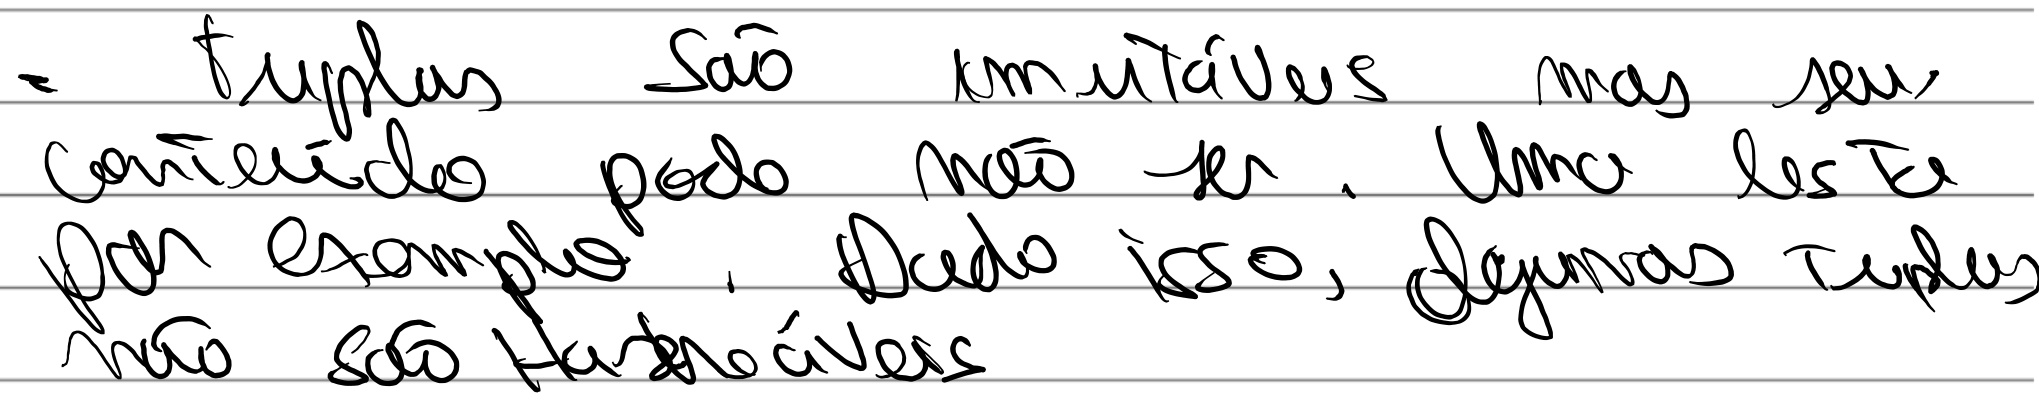 - tuplas são imutáveis mas seu
conteúdo pode não ser. Uma lista
por exemplo. Dado isso, algumas tuplas
não são Hasheáveis